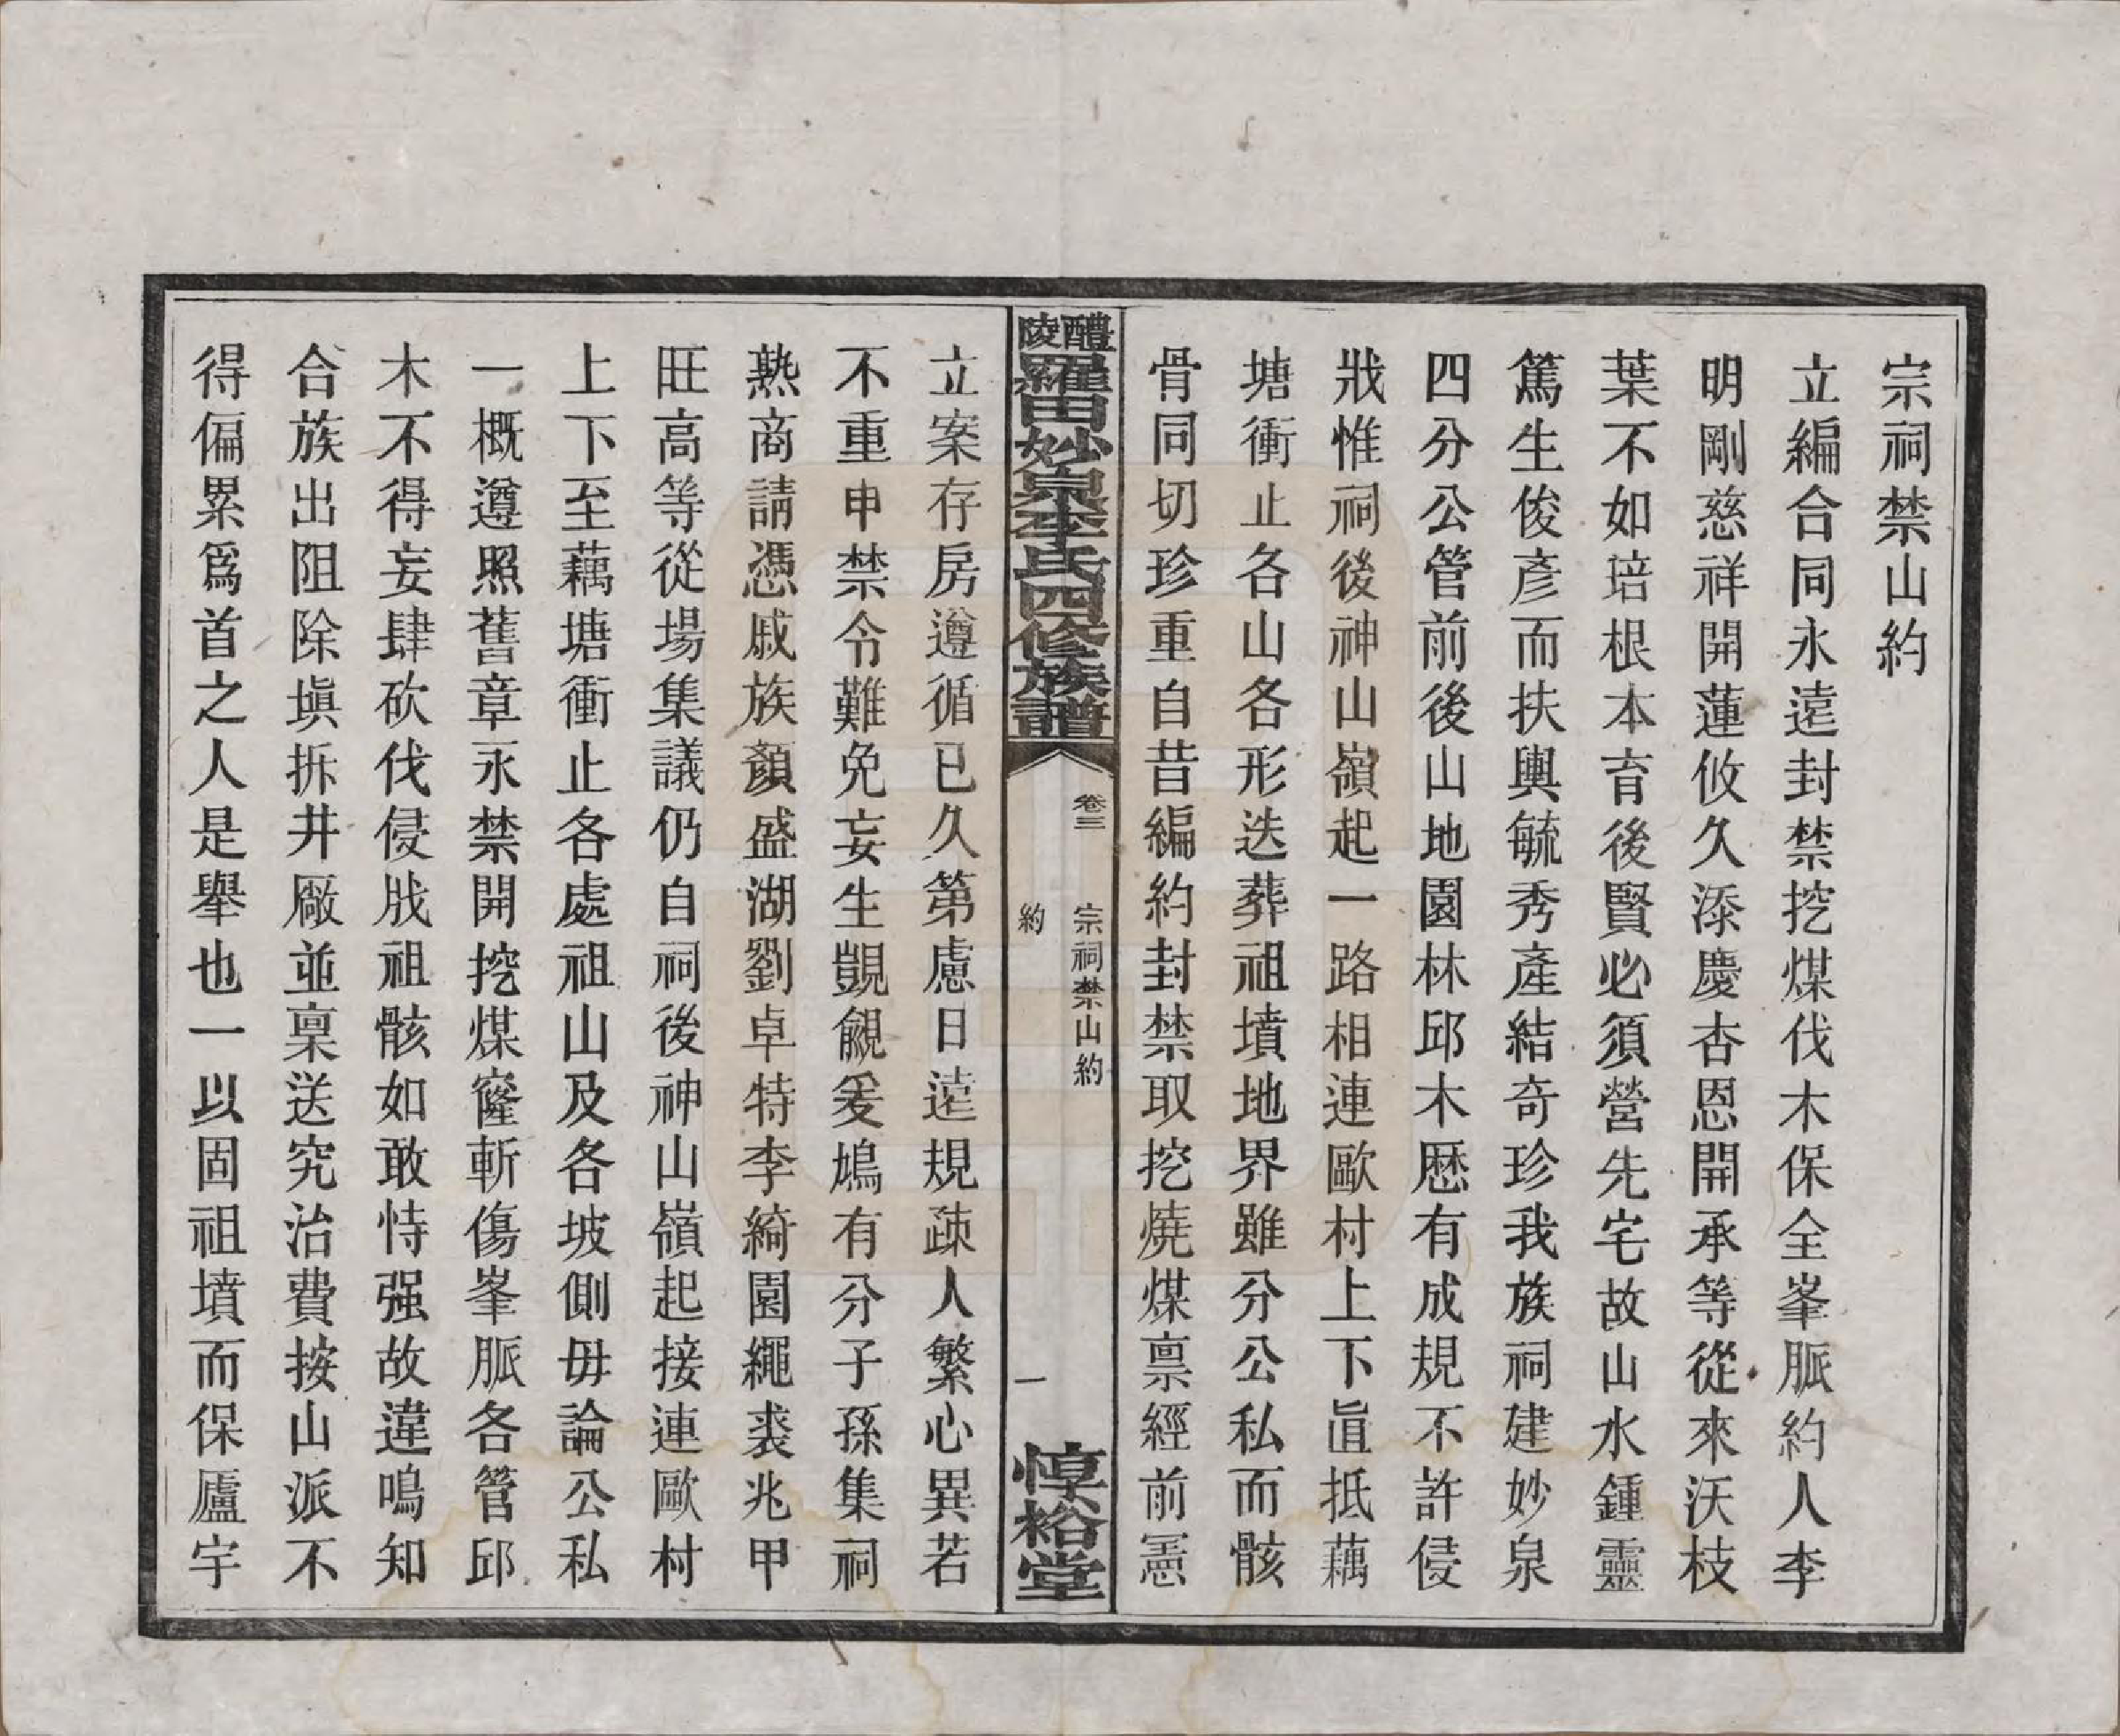 宗祠禁山約
立編合同永遠封禁挖煤伐木保全峯脈約人李
明剛慈祥開蓮攸久添慶杏恩開承等從來沃枝
葉不如培根本育後賢必須營先宅故山水鍾靈
篤生俊彥而扶輿毓秀產結奇珍我族祠建妙泉
四分公管前後山地園林邱木歷有成規不許侵
戕惟祠後神山嶺起一路相連歐村上下直抵藕
塘衝止各山各形迭葬祖墳地界雖分公私而骸
骨同切珍重自昔編約封禁取挖燒煤禀經前憲
醴陵羅田妙泉李氏四修族譜
卷三
宗祠禁山約
約
一
惇裕堂
立案存房遵循已久第慮日遠規疎人繁心異若
不重申禁令難免妄生覬覦爰鳩有分子孫集祠
熟商請憑戚族顏盛湖劉卓特李綺園繩裘兆甲
旺高等從場集議仍自祠後神山嶺起接連歐村
上下至藕塘衝止各處祖山及各坡側毋論公私
一概遵照舊章永禁開挖煤窿斬傷峯脈各管邱
木不得妄肆砍伐侵戕祖骸如敢恃强故違鳴知
合族出阻除塡拆井廠並稟送究治費按山派不
得偏累爲首之人是舉也一以固祖墳而保廬宇